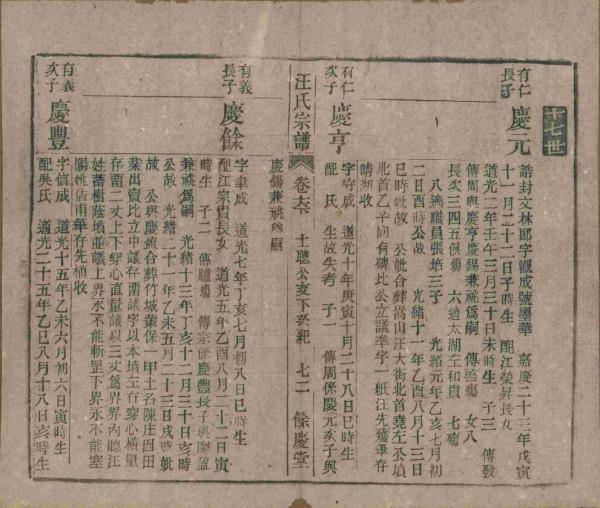 十七世
有仁長子
慶元
誥封文林郎字觀成號墨華 嘉慶二十三年戊寅
十一月二十二日子時生 配江榮昇長女
道光二年壬午三月三十日未時生 子三 傳發
傳周與慶亨慶錫兼祧爲嗣 傳啓殤 女八
長次三四五俱殤 六適太湖王和貴 七殤
八適職員張培三子 光緒元年乙亥七月初
二日酉時公故 光緒十一年乙酉八月十三日
巳時妣故 公妣合葬嵩山汪大街北首堯左公墳
北首乙辛向有碑比公立議準字一紙汪先獲筆存
晴湖收
有仁次子
慶亨
字守成 道光十年庚寅十月二十八日巳時生
配氏 生故失考 子一 傳周係慶元次子與
慶錫兼祧爲嗣
汪氏宗譜
卷六
士聰公支下系紀
七二
餘慶堂
有義長子
慶餘
字聿成 道光七年丁亥七月初八日巳時生
配江宗貴長女 道光五年乙酉八月二十二日寅
時生 子二 傳臚殤 傳宗係慶豐長子與慶盈
兼祧爲嗣 光緒十三年丁亥十二月三十日亥時
公故 光緒二十一年乙未五月二十三日戌時妣
故 公與慶流合葬竹城業保一甲土名陳庄因田
業出賣比立中議存閤議字以本墳左右穿心橫量
存留二丈上下穿心直量議以三丈爲界界內聽汪
姓蓄樹蔭墳並議上界永不能斬罡下界永不能塞
陽姚佔甫筆存先植收
有義次子
慶豐
字信成 道光十五年乙未六月初六日寅時生
配吳氏 道光二十五年乙巳八月十八日亥時生